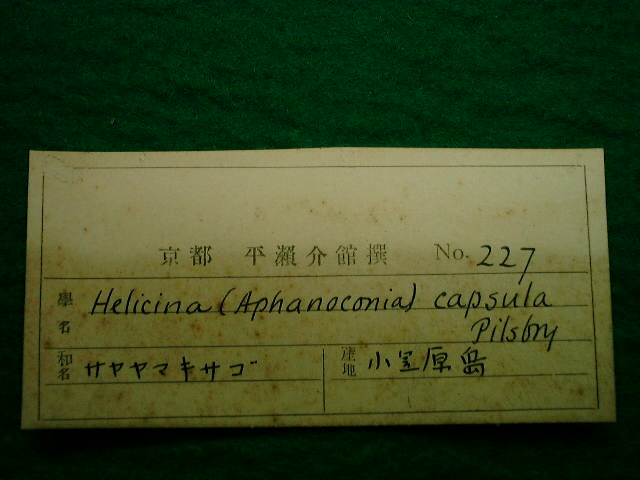 京都 平瀨介館撰 No. 227
學名 Helicina (Aphanoconia) capsula
Pilsbry
和名 サヤヤマキサゴ 産地 小笠原島